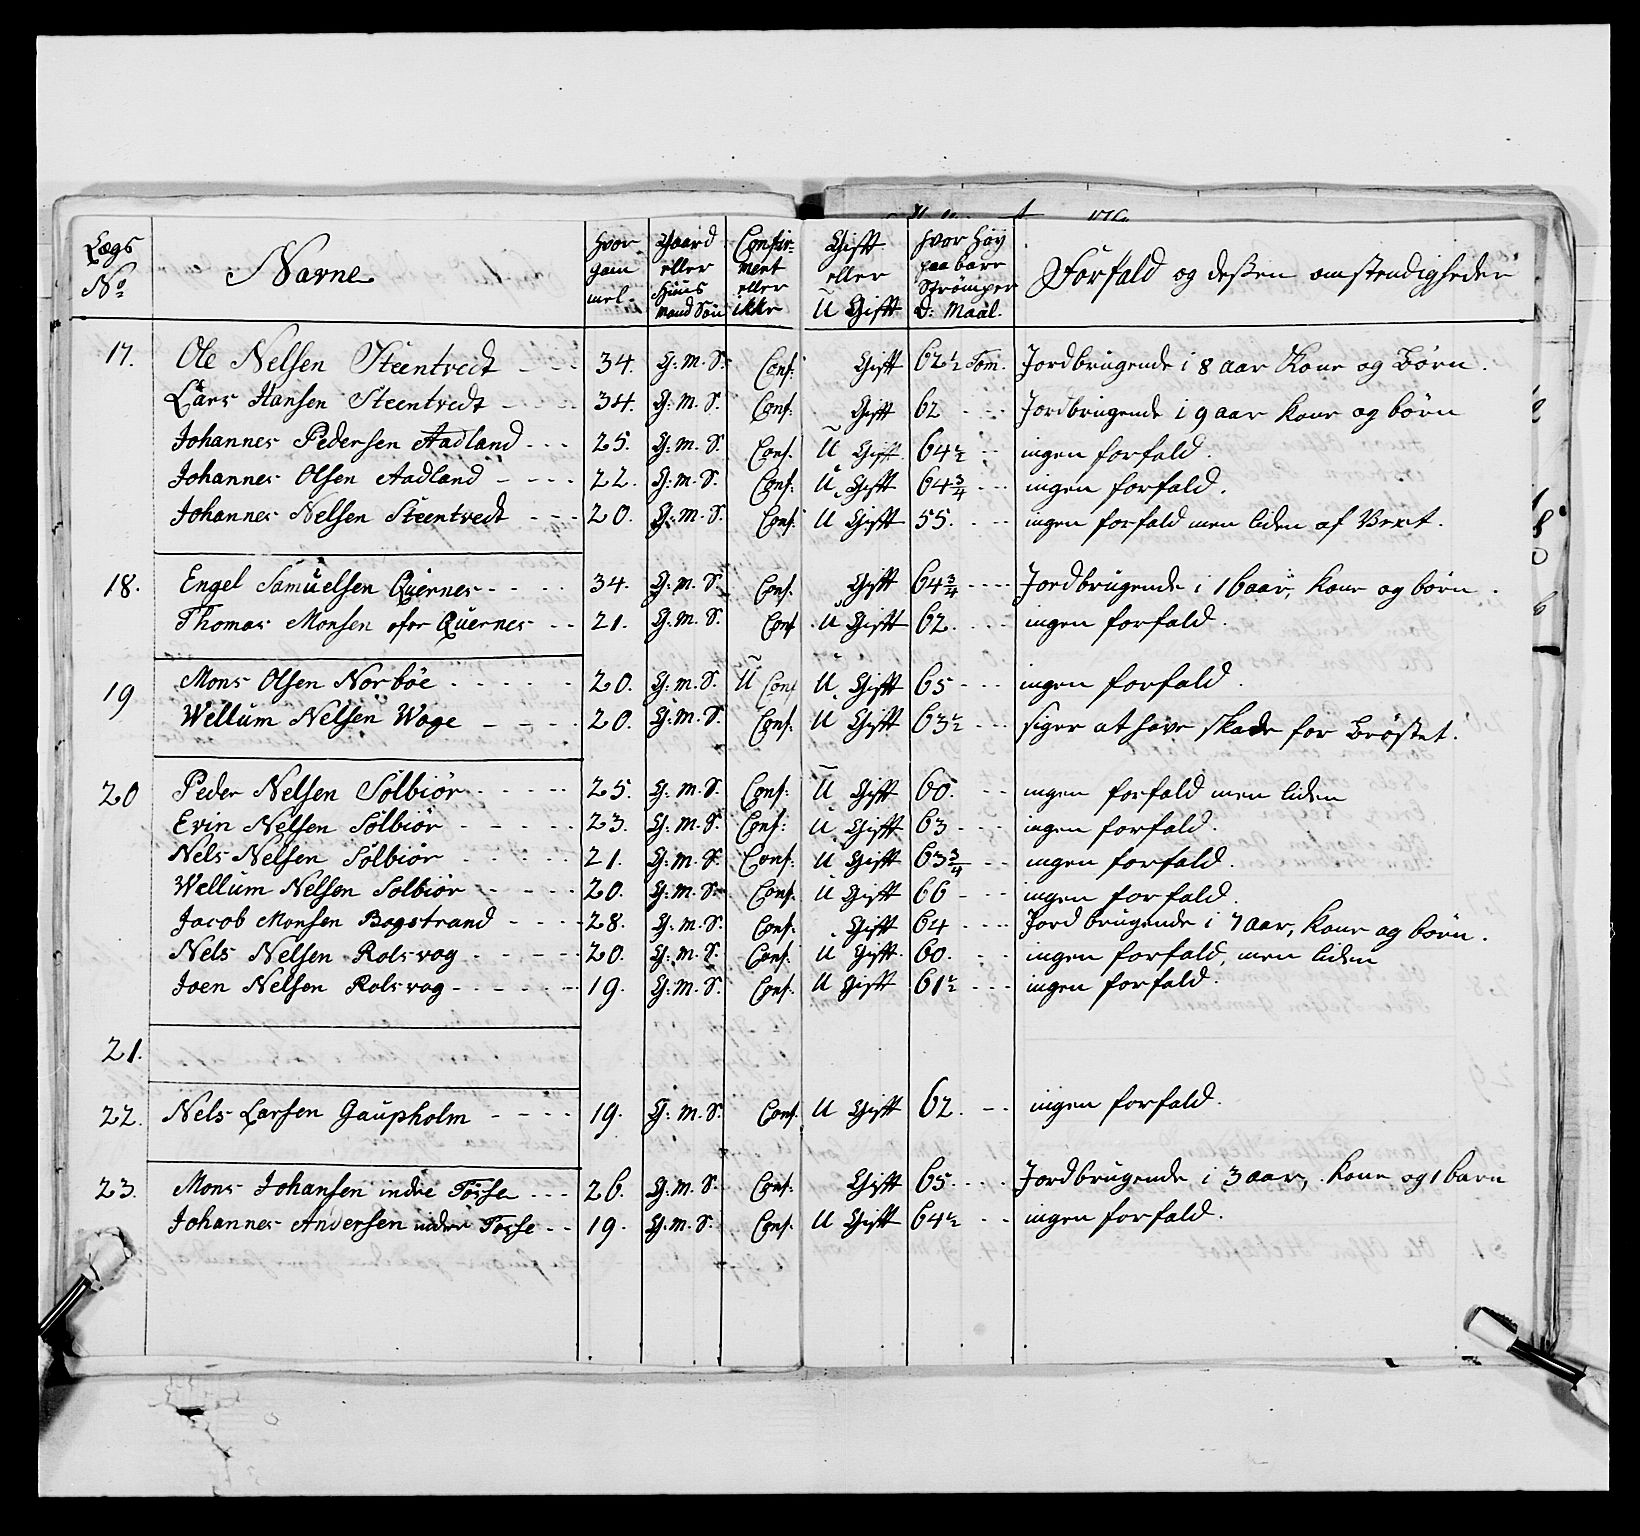 Lægs No Navne Hvor gammel Gaard eller Huus mand Søn Confirmert eller ikke Gift eller U Gift hvor Høy paa bare Strømper D: Maal. Forfald og dessen omstendigheder
17. Ole Nelsen Steentvedt - - 34. G: M: S. Conf: Gift 62½ Tom. Jordbrugende i 8 aar Kone og Børn.
Lars Hansen Steentvedt - - - 34. G: M. S. Conf: Gift 62 - - - Jordbrugende i 9 aar kone og børn
Johannes Pedersen Aadland - - - 25. G: M. S. Conf. U Gift 64½ - - ingen forfald.
Johannes Olsen Aadland - - - - 22. G: M. S. Conf: U Gift 64¾ - - - ingen forfald.
Johannes Nelsen Steentvedt - - - 20. G: M. S. Conf U Gift 55. - - - ingen forfald men liden af Vext.
18. Engel Samuelsen Quernes - - - - 34. G: M. S. Conf. Gift 64¾ - - - - Jordbrugende i 16 aar, kone og børn.
Thomas Monsen øfor Quernes - - 21. G: M. S. Conf U Gift 62. - - - ingen forfald.
19 Mons Olsen Norbøe - - - - - 20. G: M. S. U Conf U Gift 65 - - - ingen forfald.
Wellum Nelsen Woge - - - - 20. G: M. S. Conf: U Gift 63½ - - siger at have skade for Brøstet.
20 Peder Nelsen Solbiør - - - - - 25. G: M. S. Conf: U Gift 60. - - ingen forfald men liden
Evin Nelsen Solbiør - - - - - 23. G: M. S. Conf: U Gift 63 - - - ingen forfald.
Nels Nelsen Solbiør - - - - - 21. G: M. S. Conf: U Gift 63¾ - - ingen forfald.
Wellum Nelsen Solbiør - - - - 20. G: M. S. Conf. U Gift 66 - - - ingen forfald.
Jacob Monsen Bogstrand - - - - 28. G: M. S. Conf: Gift 64 - - - - Jord brugende i 7 aar, kone og børn.
Nels Nelsen Rolsvog - - - - - 20. G: M. S. Conf: U Gift 60. - - - ingen forfald, men liden
Joen Nelsen Rolsvog - - - - - - 19. G: M. S. Conf: U Gift 61½ - - - ingen forfald.
21.
22. Nels Larsen Gaupholm - - - - 19. G: M. S. Conf. U Gift 62. - - ingen forfald.
23. Mons Johansen indre Tosse - - - 26. G: M. S. Conf: Gift 65. - - - - Jordbrugende i 3 aar, kone og 1 barn
Johannes Andersen indre Tosse - - 19. G. M. S. Conf. U Gift 64½ - - ingen forfald.